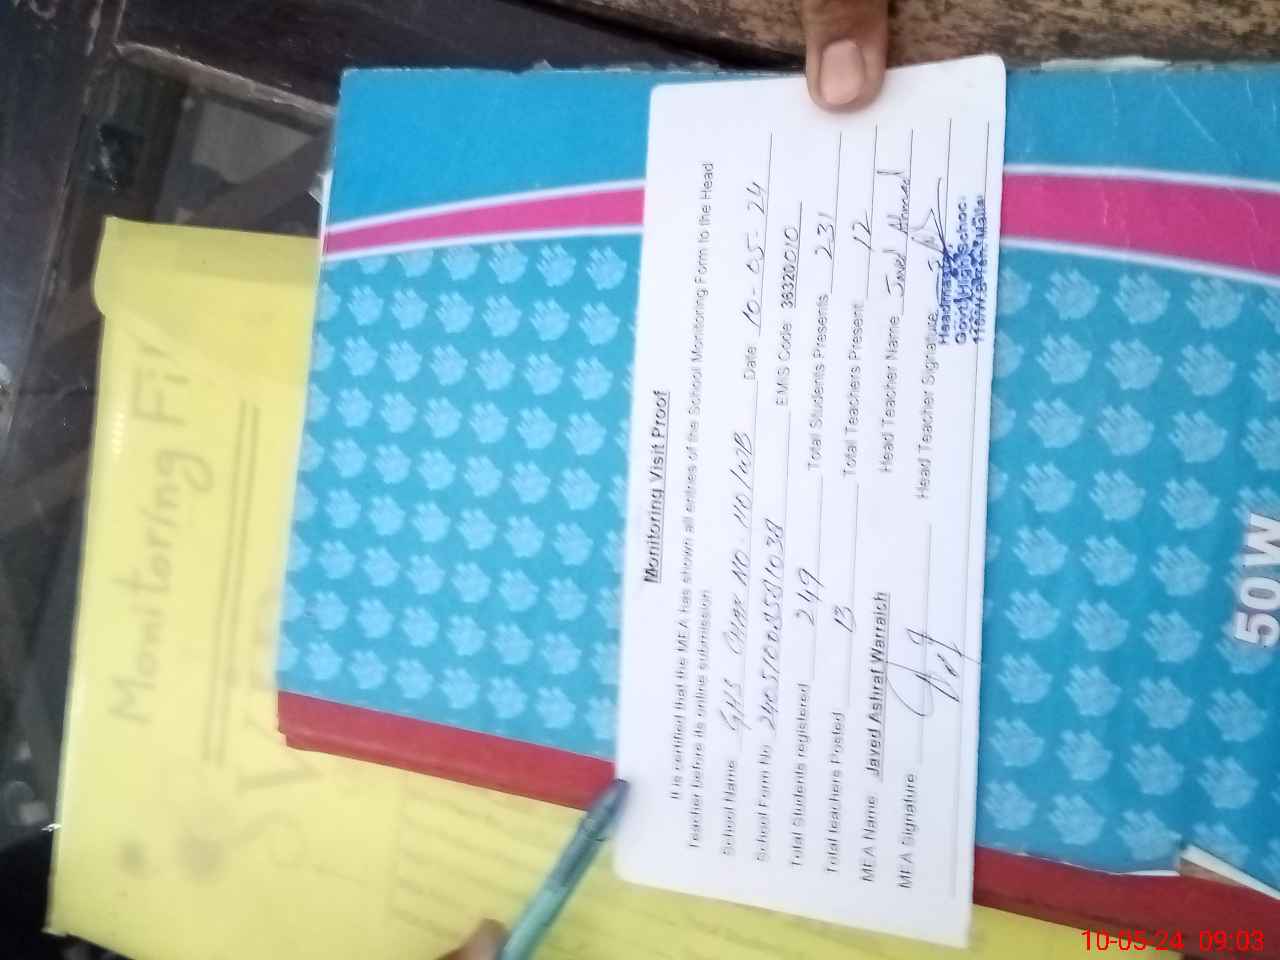 Monitoring Visit Proof
It is certified that the MEA has shown all entries of the School Monitoring Form to the Head
Teacher before its online submission
School Name GHS CHAK NO-110/WB Date 10-05-24
School Form No EMIS Code 36320010
Total Students registered 249 Total Students Presents 231
Total teachers Posted 13 Total Teachers Present 12
MEA Name Javed Ashraf Warraich Head Teacher Name Javed Ahmad
MEA Signature Head Teacher Signature
Headmaster
Govt. High School
Monitoring Fil
50W
10-05-24 09:03